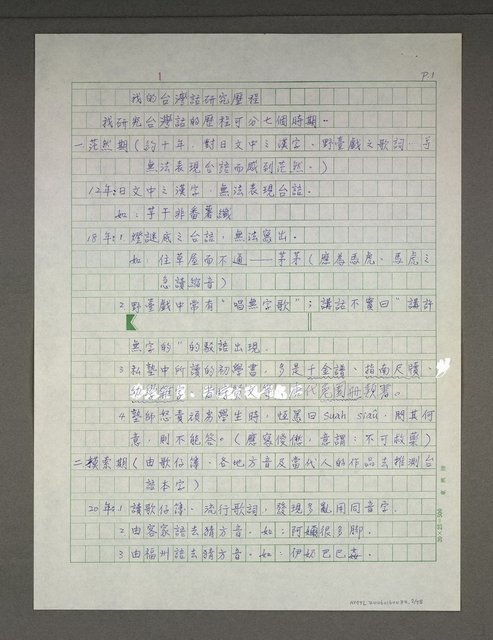 1
P.1
我的台灣語研究歷程
我研究台灣話的歷程可分七個時期。
一茫然期(約十年,對日文中之漢字、野臺戲之歌詞,
無法表現台語而感到茫然。)
12年:日文中之漢字,無法表現台語。
如:芋干非番薯
18年:1 燈謎 之台語,無法寫出。
如:住草屋而不通——茅茅( 馬虎、馬虎之
急讀縮音)
2 野臺戲中常有"唱無字歌";講話不實曰"講許
無字的"的 語出現.
3 私塾中所讀的初學書,多是千金譜、指南尺牘、
唐代 冊教書。
4 塾師怒責頑劣學生時,恆罵曰 suah siaû,問其何
意,則不能答。(應寫 ,意謂:不可救藥)
二摸索期(由歌仔簿、各地方音及當代人的作品去推測台
語本字)
20年:1 讀歌仔簿、流行歌詞,發現多亂用同音字.
2 由客家語去猜方音。如:阿 很多腳。
3 由福州語去猜方音。如:伊 巴巴